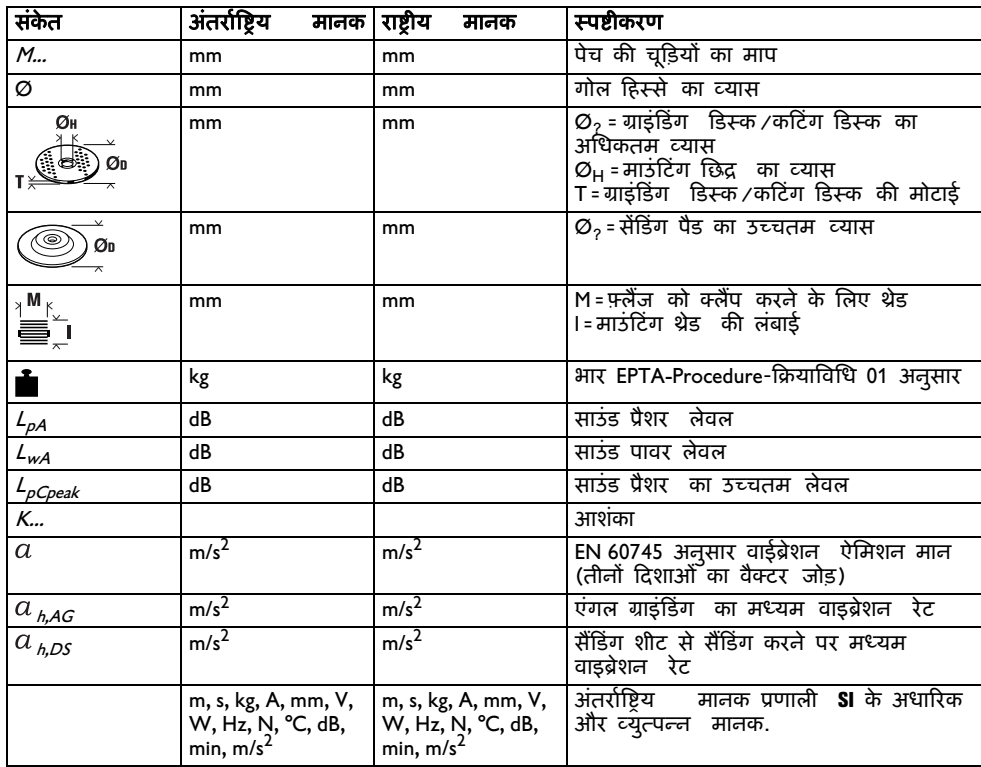 संकेत अंतर्राष्ट्रिय मानक राष्ट्रीय मानक स्पष्टीकरण
M... mm mm पेच की चूड़ियों का माप
Ø mm mm गोल हिस्से का व्यास
ØH ØD T mm mm Ø? = ग्राइंडिंग डिस्क /कटिंग डिस्क का
अधिकतम व्यास
ØH = माउंटिंग छिद्र का व्यास
T = ग्राइंडिंग डिस्क /कटिंग डिस्क की मोटाई
ØD mm mm Ø? = सेंडिंग पैड का उच्चतम व्यास
M l mm mm M = फ़्लैंज को क्लैंप करने के लिए थ्रेड
l = माउंटिंग थ्रेड की लंबाई
kg kg भार EPTA-Procedure-क्रियाविधि 01 अनुसार
LpA dB dB साउंड प्रैशर लेवल
LwA dB dB साउंड पावर लेवल
LpCpeak dB dB साउंड प्रैशर का उच्चतम लेवल
K... आशंका
a m/s2 m/s2 EN 60745 अनुसार वाईब्रेशन ऐमिशन मान
(तीनों दिशाओं का वैक्टर जोड़)
a h,AG m/s2 m/s2 एंगल ग्राइंडिंग का मध्यम वाइब्रेशन रेट
a h,DS m/s2 m/s2 सैंडिंग शीट से सैंडिंग करने पर मध्यम
वाइब्रेशन रेट
m, s, kg, A, mm, V, m, s, kg, A, mm, V, अंतर्राष्ट्रिय मानक प्रणाली SI के अधारिक
W, Hz, N, °C, dB, W, Hz, N, °C, dB, और व्युत्पन्न मानक.
min, m/s2 min, m/s2